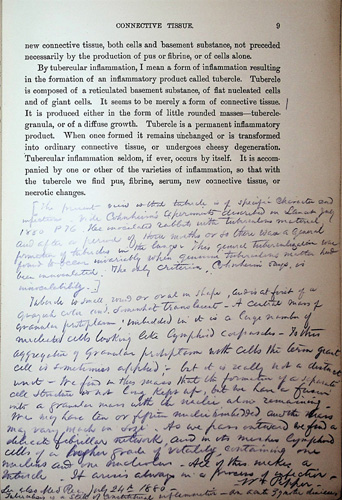 CONNECTIVE TISSUE. 9
new connective tissue, both cells and basement substance, not preceded
necessarily by the production of pus or fibrine, or of cells alone.
By tubercular inflammation, I mean a form of inflammation resulting
in the formation of an inflammatory product called tubercle. Tubercle
is composed of a reticulated basement substance, of flat nucleated cells
and of giant cells. It seems to be merely a form of connective tissue.
It is produced either in the form of little rounded masses—tubercle-
granula, or of a diffuse growth. Tubercle is a permanent inflammatory
product. When once formed it remains unchanged or is transformed
into ordinary connective tissue, or undergoes cheesy degeneration.
Tubercular inflammation seldom, if ever, occurs by itself. It is accom-
panied by one or other of the varieties of inflammation, so that with
the tubercle we find pus, fibrine, serum, new connective tissue, or
necrotic changes.
[The present view is that tubercle is of specific character and
infectious. Vide Cohnheim's experiments
1880 P 76. He inoculated rabbits with tubercular material
and after a period of three months or so there was a general
formation of tubercles in the lungs. This general tuberculization was
found to occur invariably when genuine tuberculous matter had
been inoculated. The only criterion, Cohnheim says, is
inoculability.]
Tubercle is small round or oval in shape, and is at first of a
grayish color and somewhat translucent. A certain mass of
granular protoplasm; imbedded in it is a large number of
nucleated cells looking like lymphoid corpuscles. To this
aggregation of granular protoplasm with cells the term giant
cell is sometimes applied; but it is really not a distinct
unit. We find in this mass that the formation of a separate
cell structure is not long kept up
into a granular mass with the nuclei alone remaining.
We may have ten or fifteen nuclei imbedded and the
may vary much in size. As we pass outward we find a
delicate fibrillar network, and in its meshes lymphoid
cells of a higher grade of vitality, containing one
nucleus and one nucleolus. All of this makes a
tubercle. It arises always in a process
Pepper.
July 24th 1880
Tubercle is a constitutional inflammation